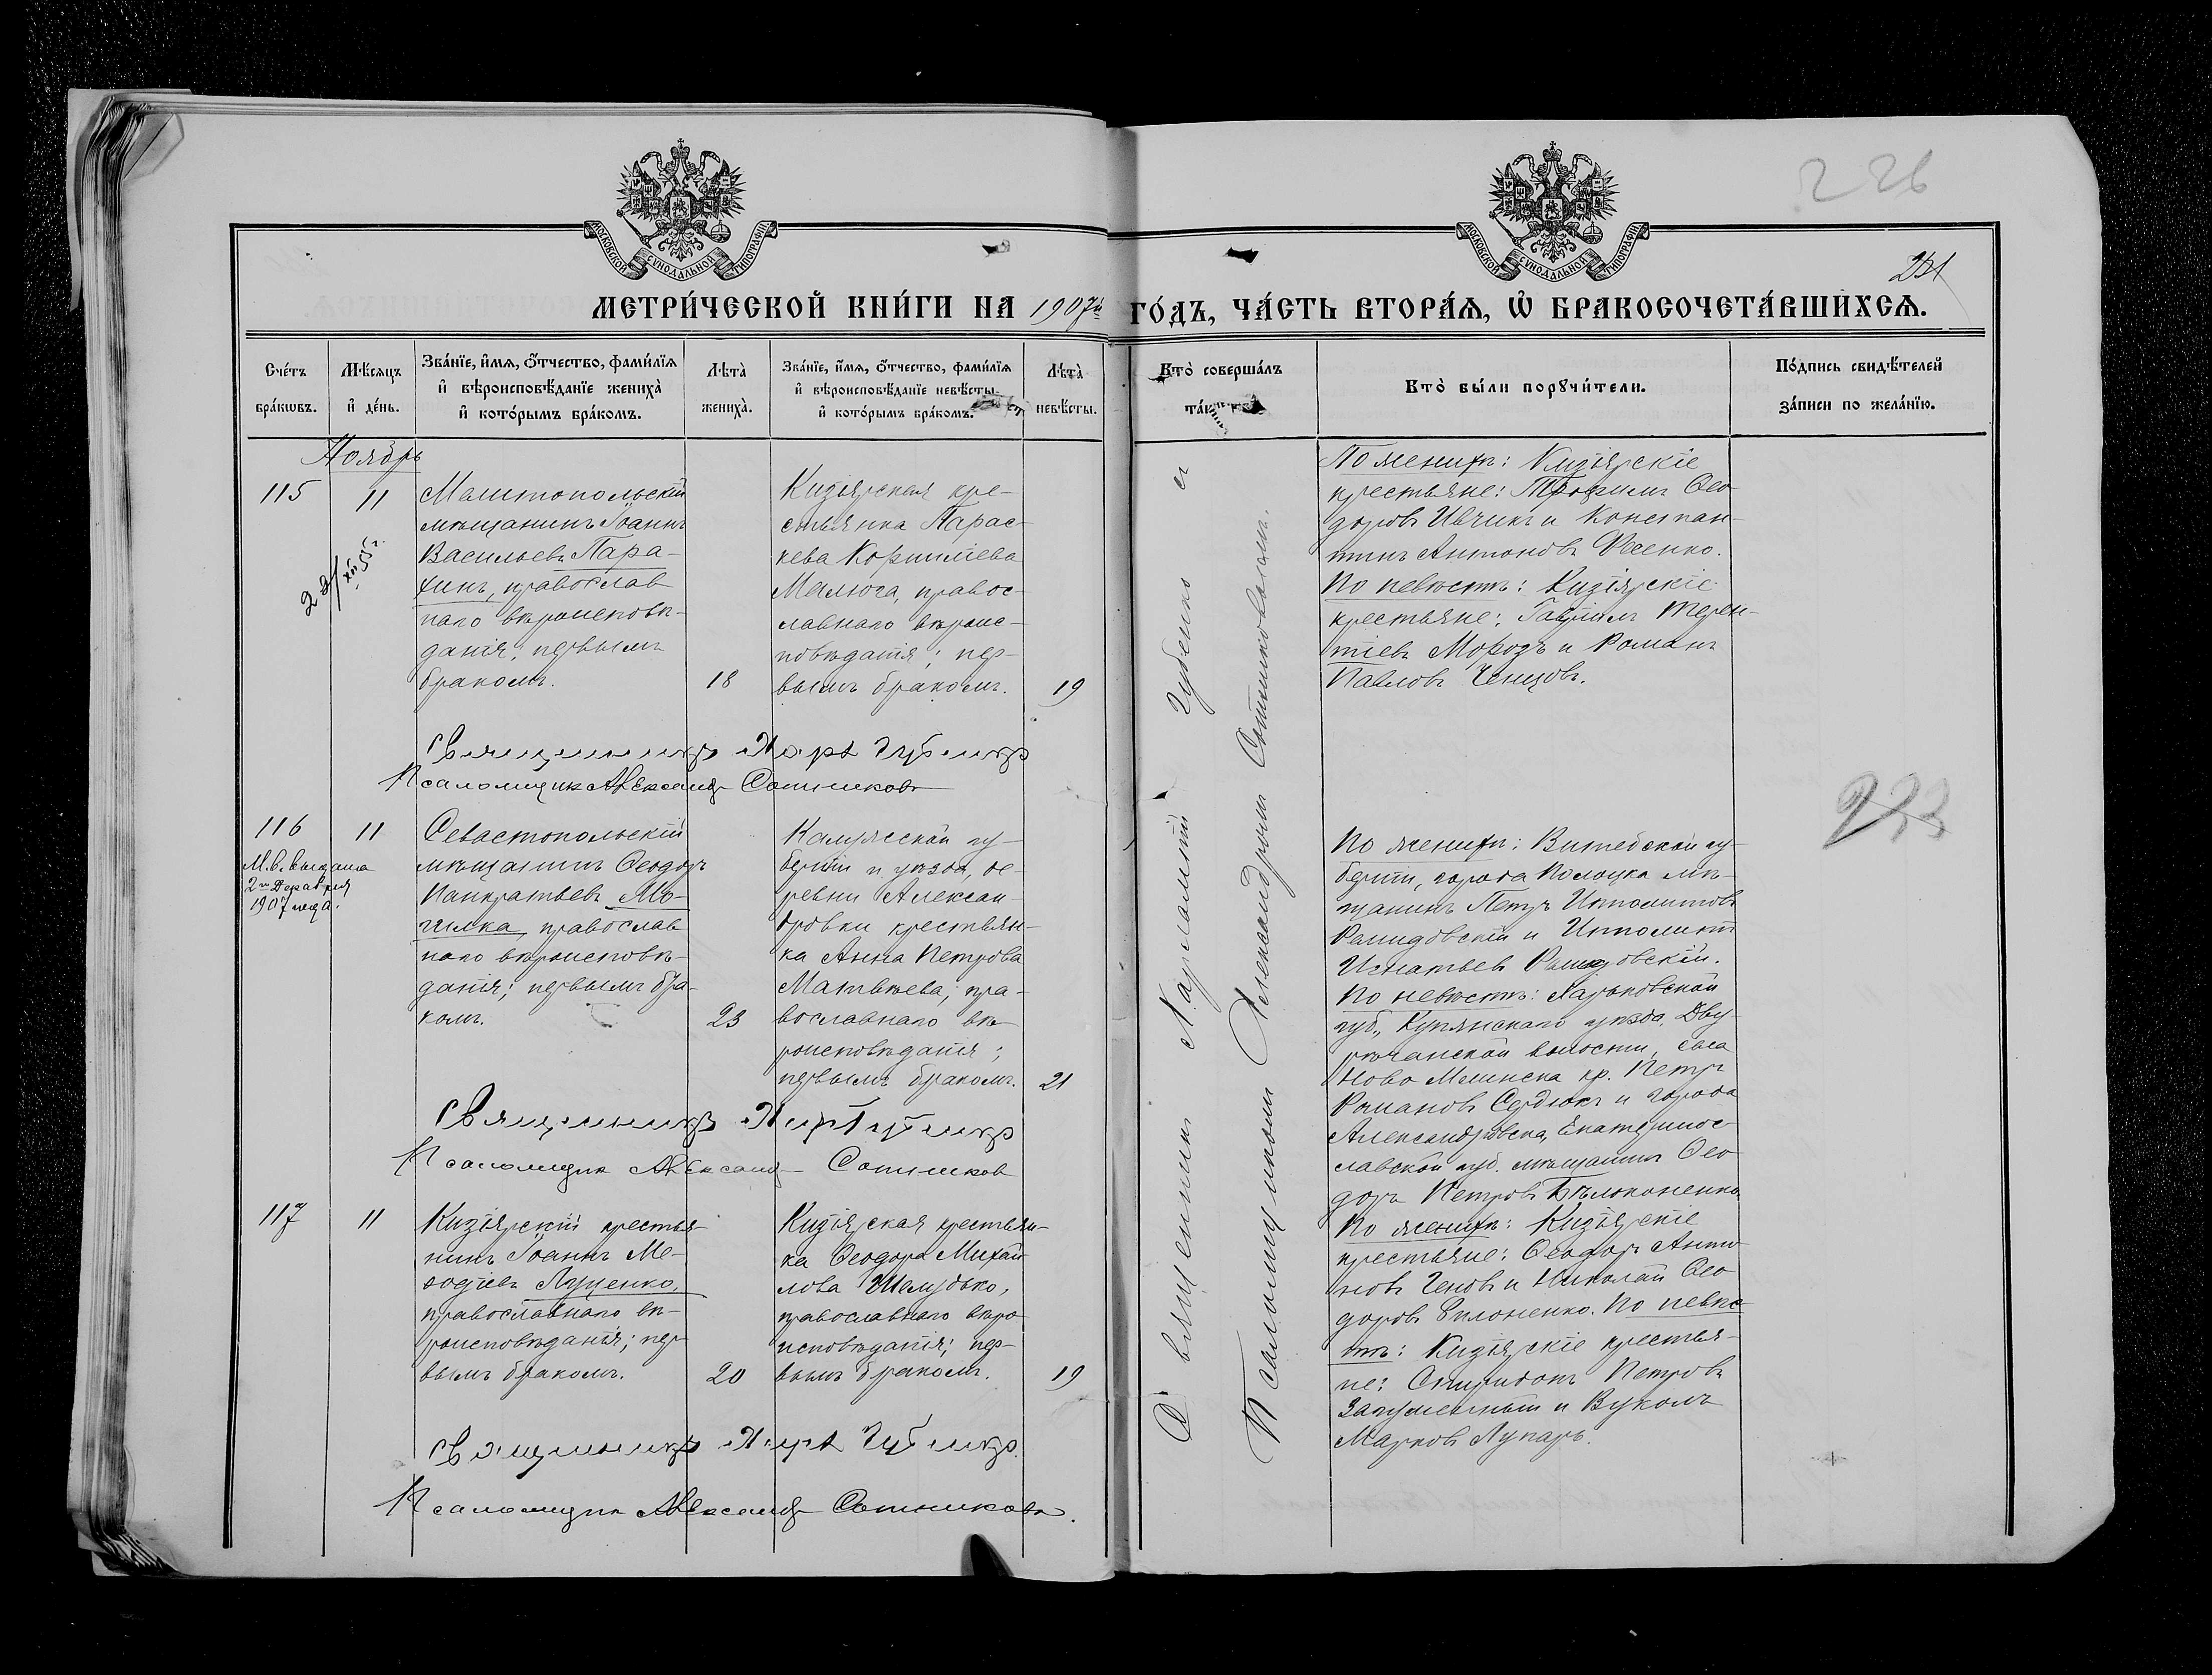 226
231
МОСКОВСКОЙ СУНОДАЛЬНОЙ ТИПОГРАФІИ
МОСКОВСКОЙ СУНОДАЛЬНОЙ ТИПОГРАФІИ
МЕТРИ́ЧЕСКОЙ КНИ́ГИ НА 1907й ГО́ДЪ, ЧА́СТЬ ВТОРА́Ѧ, Ѽ БРАКОСОЧЕТА́ВШИХСѦ.
Сче́тъ бра́кѡвъ.
Мѣ́сяцъ и҆ де́нь.
Зва́нїе, и҆́мѧ, ѻ҆́тчество, фами́лїѧ
и҆ вѣроисповѣ́данїе жениха̀
и҆ кото́рымъ бра́комъ.
Лѣта̀ жениха̀.
Зва́нїе, и҆́мѧ, ѻ҆́тчество, фами́лїѧ
и҆ вѣроисповѣ́данїе невѣ́сты
и҆ кото́рымъ бра́комъ.
Лѣта̀ невѣ́сты.
Кто̀ соверша́лъ
Кто̀ бы́ли порꙋчи́тели.
По́дпись свидѣ́телей
за́писи по жела́нїю.
Ноябрь
115
11
Мелитопольскій
мѣщанинъ Іоаннъ
Васильевъ Пара-
хинъ, православ
наго вѣроисповѣ-
данія, первымъ
бракомъ.
18
Кизіярская кре-
стьянка Парас-
кева Корниліева
Малюга, правос-
лавнаго вѣроис-
повѣданія; пер-
вымъ бракомъ.
19
По женихѣ: Кизіярскіе
крестьяне: Трофимъ Ѳео
доровъ Ивчикъ и Констан-
тинъ Антоновъ Фесенко.
По невѣстѣ: Кизіярскіе
крестьяне: Гавріилъ Терен-
тіевъ Морозъ и Романъ
Павловъ Ченцовъ.
Священникъ Харл Губенко
Псаломщикъ Александръ Сотниковъ
116
11
М.в. выдана
1907 года.
Севастопольскій
мѣщанинъ Ѳеодоръ
Панкратьевъ Мо-
гилка, православ
наго вѣроисповѣ-
данія; первымъ бра-
комъ.
23
Калужской гу-
берніи и уѣзда, де-
ревни Алексан-
дровки крестьян-
ка Анна Петрова
Матвѣева; пра-
вославнаго вѣ-
роисповѣданія;
первымъ бракомъ.
21
По женихѣ: Витебской гу-
берніи, города Полоцка мѣ-
щанинъ Петръ Ипполитовъ
и Ипполитъ
Игнатьевъ
По невѣстѣ: Харьковской
губ., Купянскаго уѣзда, Дву-
рѣчанской волости, села
кр. Петръ
Романовъ Сердюкъ и города
Александровска, Екатеринос-
лавской губ. мѣщанинъ Ѳео
доръ Петровъ Бѣлоконенко.
Священникъ Харл Губенко
Псаломщикъ Александръ Сотников
117
11
Кизіярскій крестья-
нинъ Іоаннъ Ме-
ѳодіевъ Луценко,
православнаго вѣ-
роисповѣданія; пер
вымъ бракомъ.
20
Кизіярская крестьян-
ка Ѳеодора Михай
лова Шелудько,
православнаго вѣро
исповѣданія; пер-
вымъ бракомъ.
19
По женихѣ: Кизіярскіе
крестьяне: Ѳеодоръ Анто
новъ Ченовъ и Николай Ѳео
доровъ Филоненко. По невѣс-
тѣ: Кизіярскіе крестья-
не: Спиридонъ Петровъ
и Вуколъ
Марковъ Лупарь.
Священникъ Харл Губенко
Псаломщикъ Александръ Сотниковъ.
Священникъ Харлампій Губенко съ
Псаломщикомъ Александромъ Сотниковымъ.